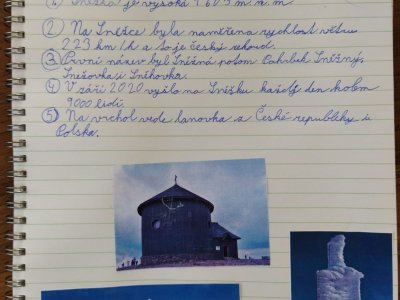 1. Sněžka je vysoká 1 603 m.n.m.
2. Na Sněžce byla naměřena rychlost větru
223 km/h a to je český rekord.
3. První název byl Sněžná potom Pahrbek Sněžný,
Sněžovka i Sněhovka.
4. V září 2020 vyšlo na Sněžku každý den kolem
9000 lidí.
5. Na vrchol vede lanovka z České republiky i z
Polska.